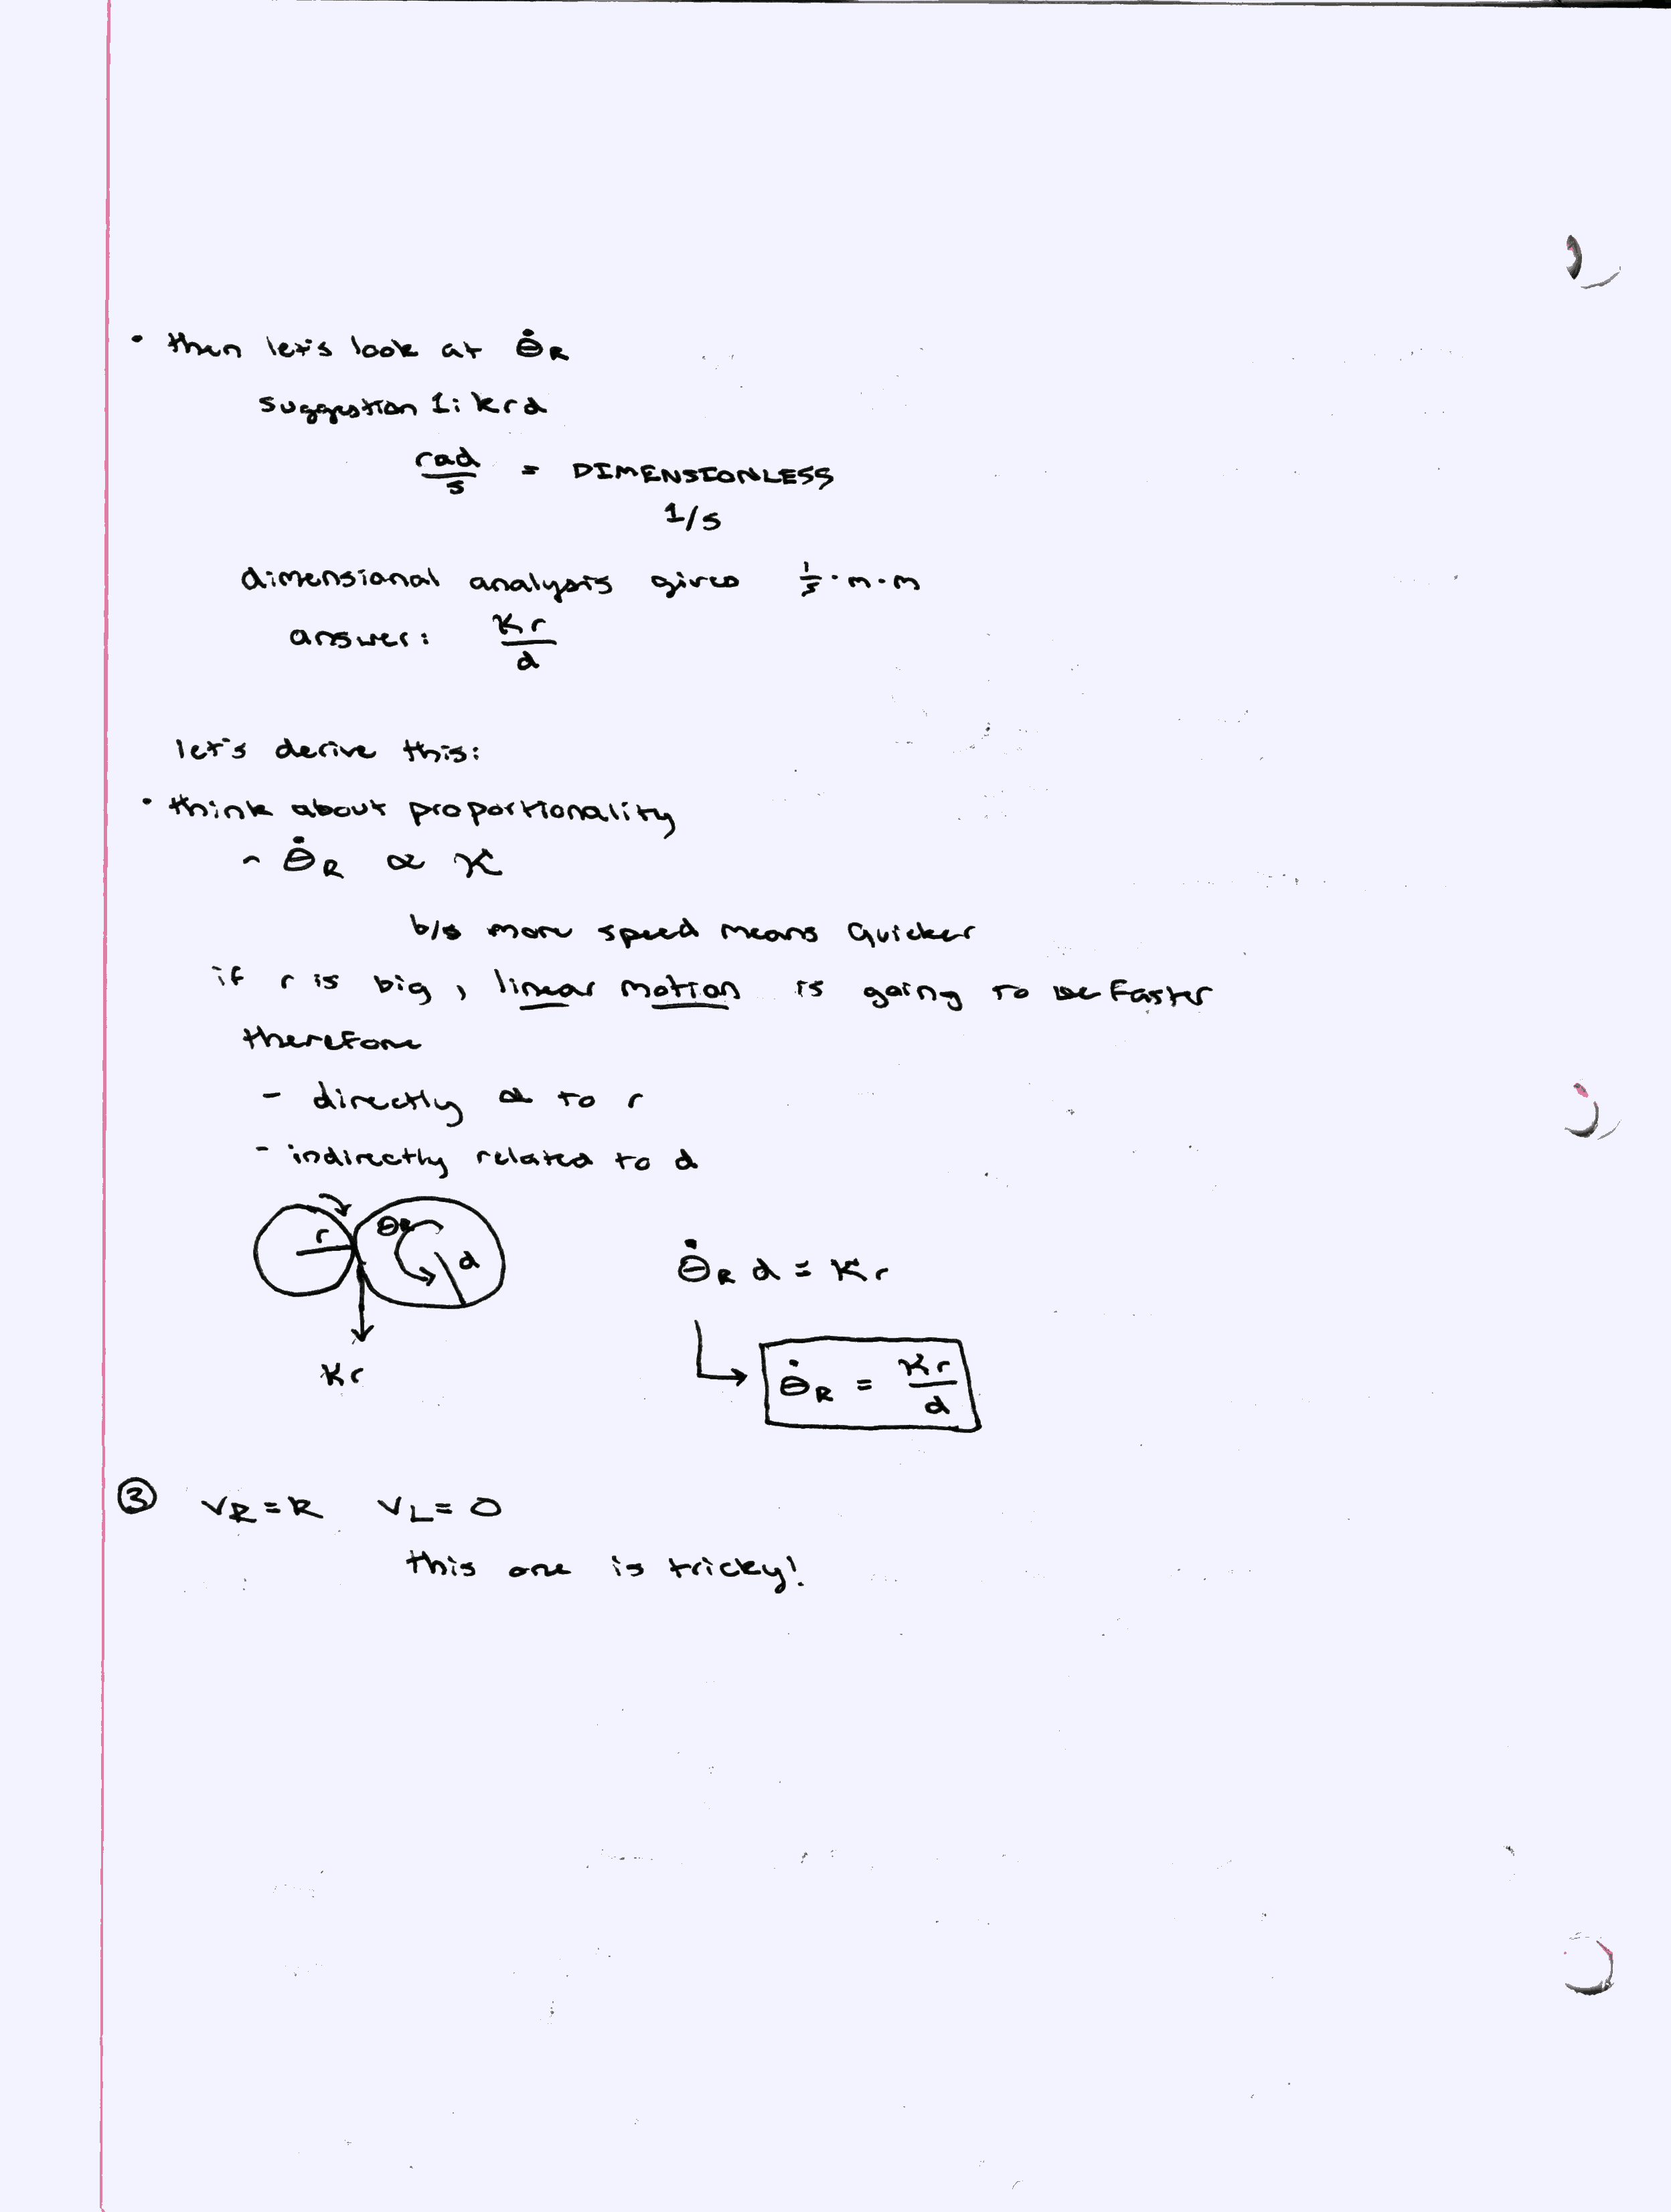 • then let's look at θ̇R
suggestion 1: krd
rad/s = DIMENSIONLESS
1/s
dimensional analysis gives 1/s · m · m
answer: Kr/d
let's derive this:
• think about proportionality
- θ̇R ∝ K
b/s more speed means Quicker
if r is big, linear motion is going to be Faster
therefore
- directly ∝ to r
- indirectly related to d
r θR d
Kr
θ̇R d = Kr
θ̇R = Kr/d
③ VR=K VL=0
this one is tricky!